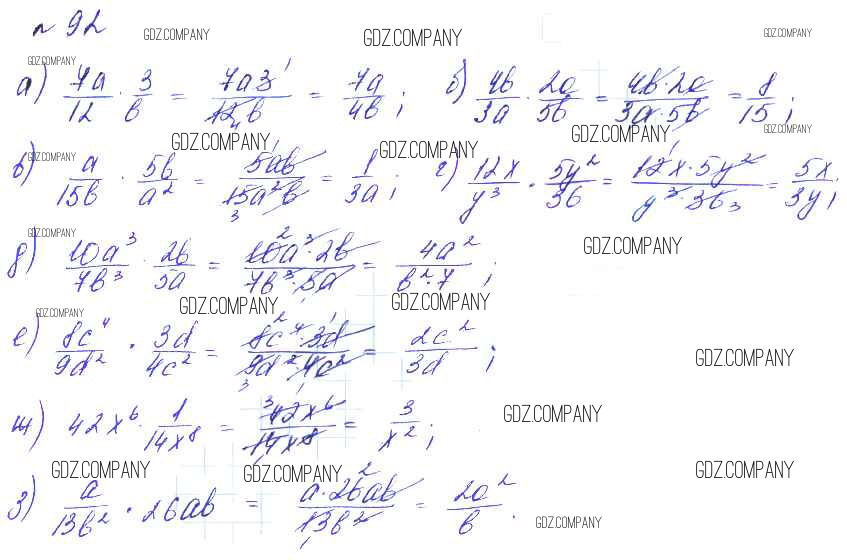 № 92
GDZ.COMPANY GDZ.COMPANY GDZ.COMPANY
GDZ.COMPANY
а) 7a/12 · 3/b = 7a3/12b = 7a/4b; б) 4b/3a · 2a/5b = 4b·2a/3a·5b = 8/15;
GDZ.COMPANY GDZ.COMPANY GDZ.COMPANY
GDZ.COMPANY GDZ.COMPANY
в) a/15b · 5b/a² = 5ab/15a²b = 1/3a; г) 12x/y³ · 5y²/36 = 12x·5y²/y³·36 = 5x/3y;
GDZ.COMPANY GDZ.COMPANY
д) 10a³/7b³ · 2b/5a = 10a³·2b/7b³·5a = 4a²/b²·7;
GDZ.COMPANY GDZ.COMPANY GDZ.COMPANY
е) 8c⁴/9d² · 3d/4c² = 8c⁴·3d/9d²·4c² = 2c²/3d;
GDZ.COMPANY
ж) 42x⁶ · 1/14x⁸ = 42x⁶/14x⁸ = 3/x²;
GDZ.COMPANY
GDZ.COMPANY GDZ.COMPANY GDZ.COMPANY
з) a/13b² · 26ab = a·26ab/13b² = 2a²/b.
GDZ.COMPANY